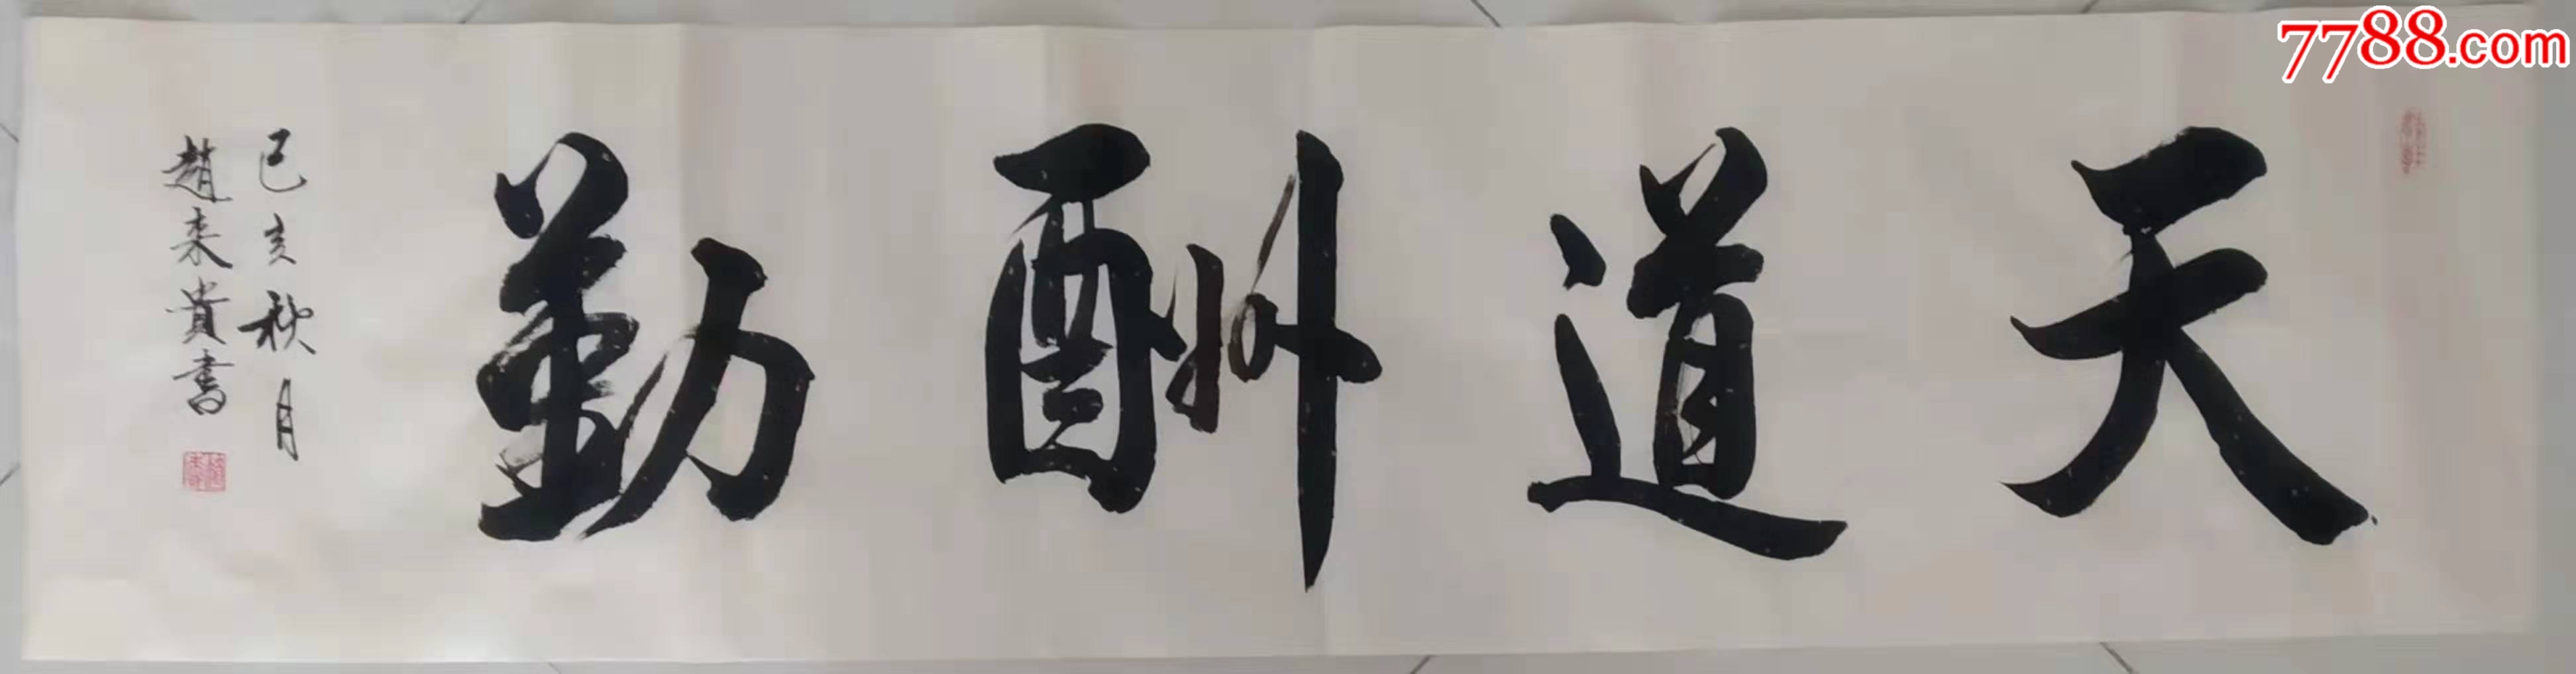 7788.com
天道酬勤
己亥秋月
趙来貴書